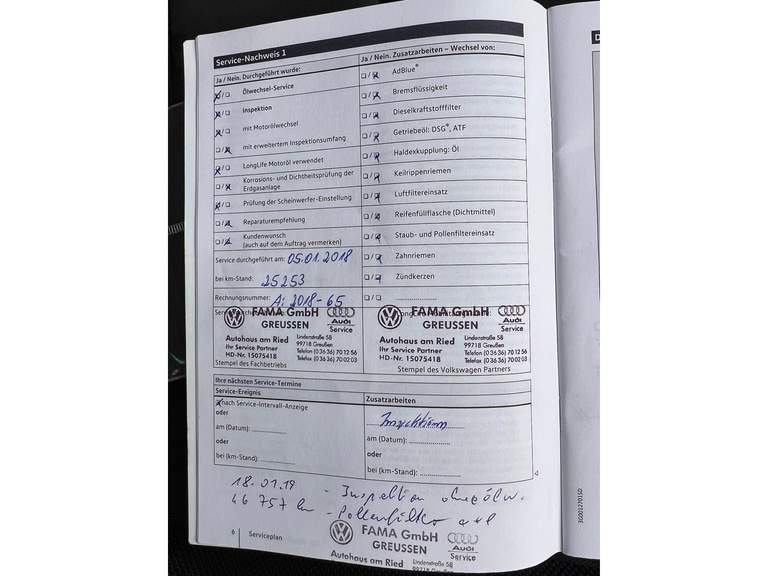 Service-Nachweis 1
Ja / Nein. Durchgeführt wurde:
Ölwechsel-Service
Inspektion
mit Motorölwechsel
mit erweitertem Inspektionsumfang
LongLife Motoröl verwendet
Korrosions- und Dichtheitsprüfung der
Erdgasanlage
Prüfung der Scheinwerfer-Einstellung
Reparaturempfehlung
Kundenwunsch
(auch auf dem Auftrag vermerken)
Service durchgeführt am: 05.01.2018
bei km-Stand: 25253
Rechnungsnummer: A: 2018-65
Ja / Nein. Zusatzarbeiten – Wechsel von:
AdBlue®
Bremsflüssigkeit
Dieselkraftstofffilter
Getriebeöl: DSG®, ATF
Haldexkupplung: Öl
Keilrippenriemen
Luftfiltereinsatz
Reifenfüllflasche (Dichtmittel)
Staub- und Pollenfiltereinsatz
Zahnriemen
Zündkerzen
FAMA GmbH
GREUSSEN
Audi
Service
Autohaus am Ried
Ihr Service Partner
HD-Nr. 15075418
Lindenstraße 58
99718 Greußen
Telefon (0 36 36) 70 12 56
Telefax (0 36 36) 70 02 03
Stempel des Fachbetriebs
FAMA GmbH
GREUSSEN
Audi
Service
Autohaus am Ried
Ihr Service Partner
HD-Nr. 15075418
Lindenstraße 58
99718 Greußen
Telefon (0 36 36) 70 12 56
Telefax (0 36 36) 70 02 03
Stempel des Volkswagen Partners
Ihre nächsten Service-Termine
Service-Ereignis
nach Service-Intervall-Anzeige
oder
am (Datum):
oder
bei (km-Stand):
Zusatzarbeiten
Inspektion
am (Datum):
oder
bei (km-Stand):
18.01.19 - Inspektion ohne Ölw.
46 757 km - Pollenfilter
FAMA GmbH
GREUSSEN
Audi
Service
Autohaus am Ried
Lindenstraße 58
6 Serviceplan
3G0012701SD